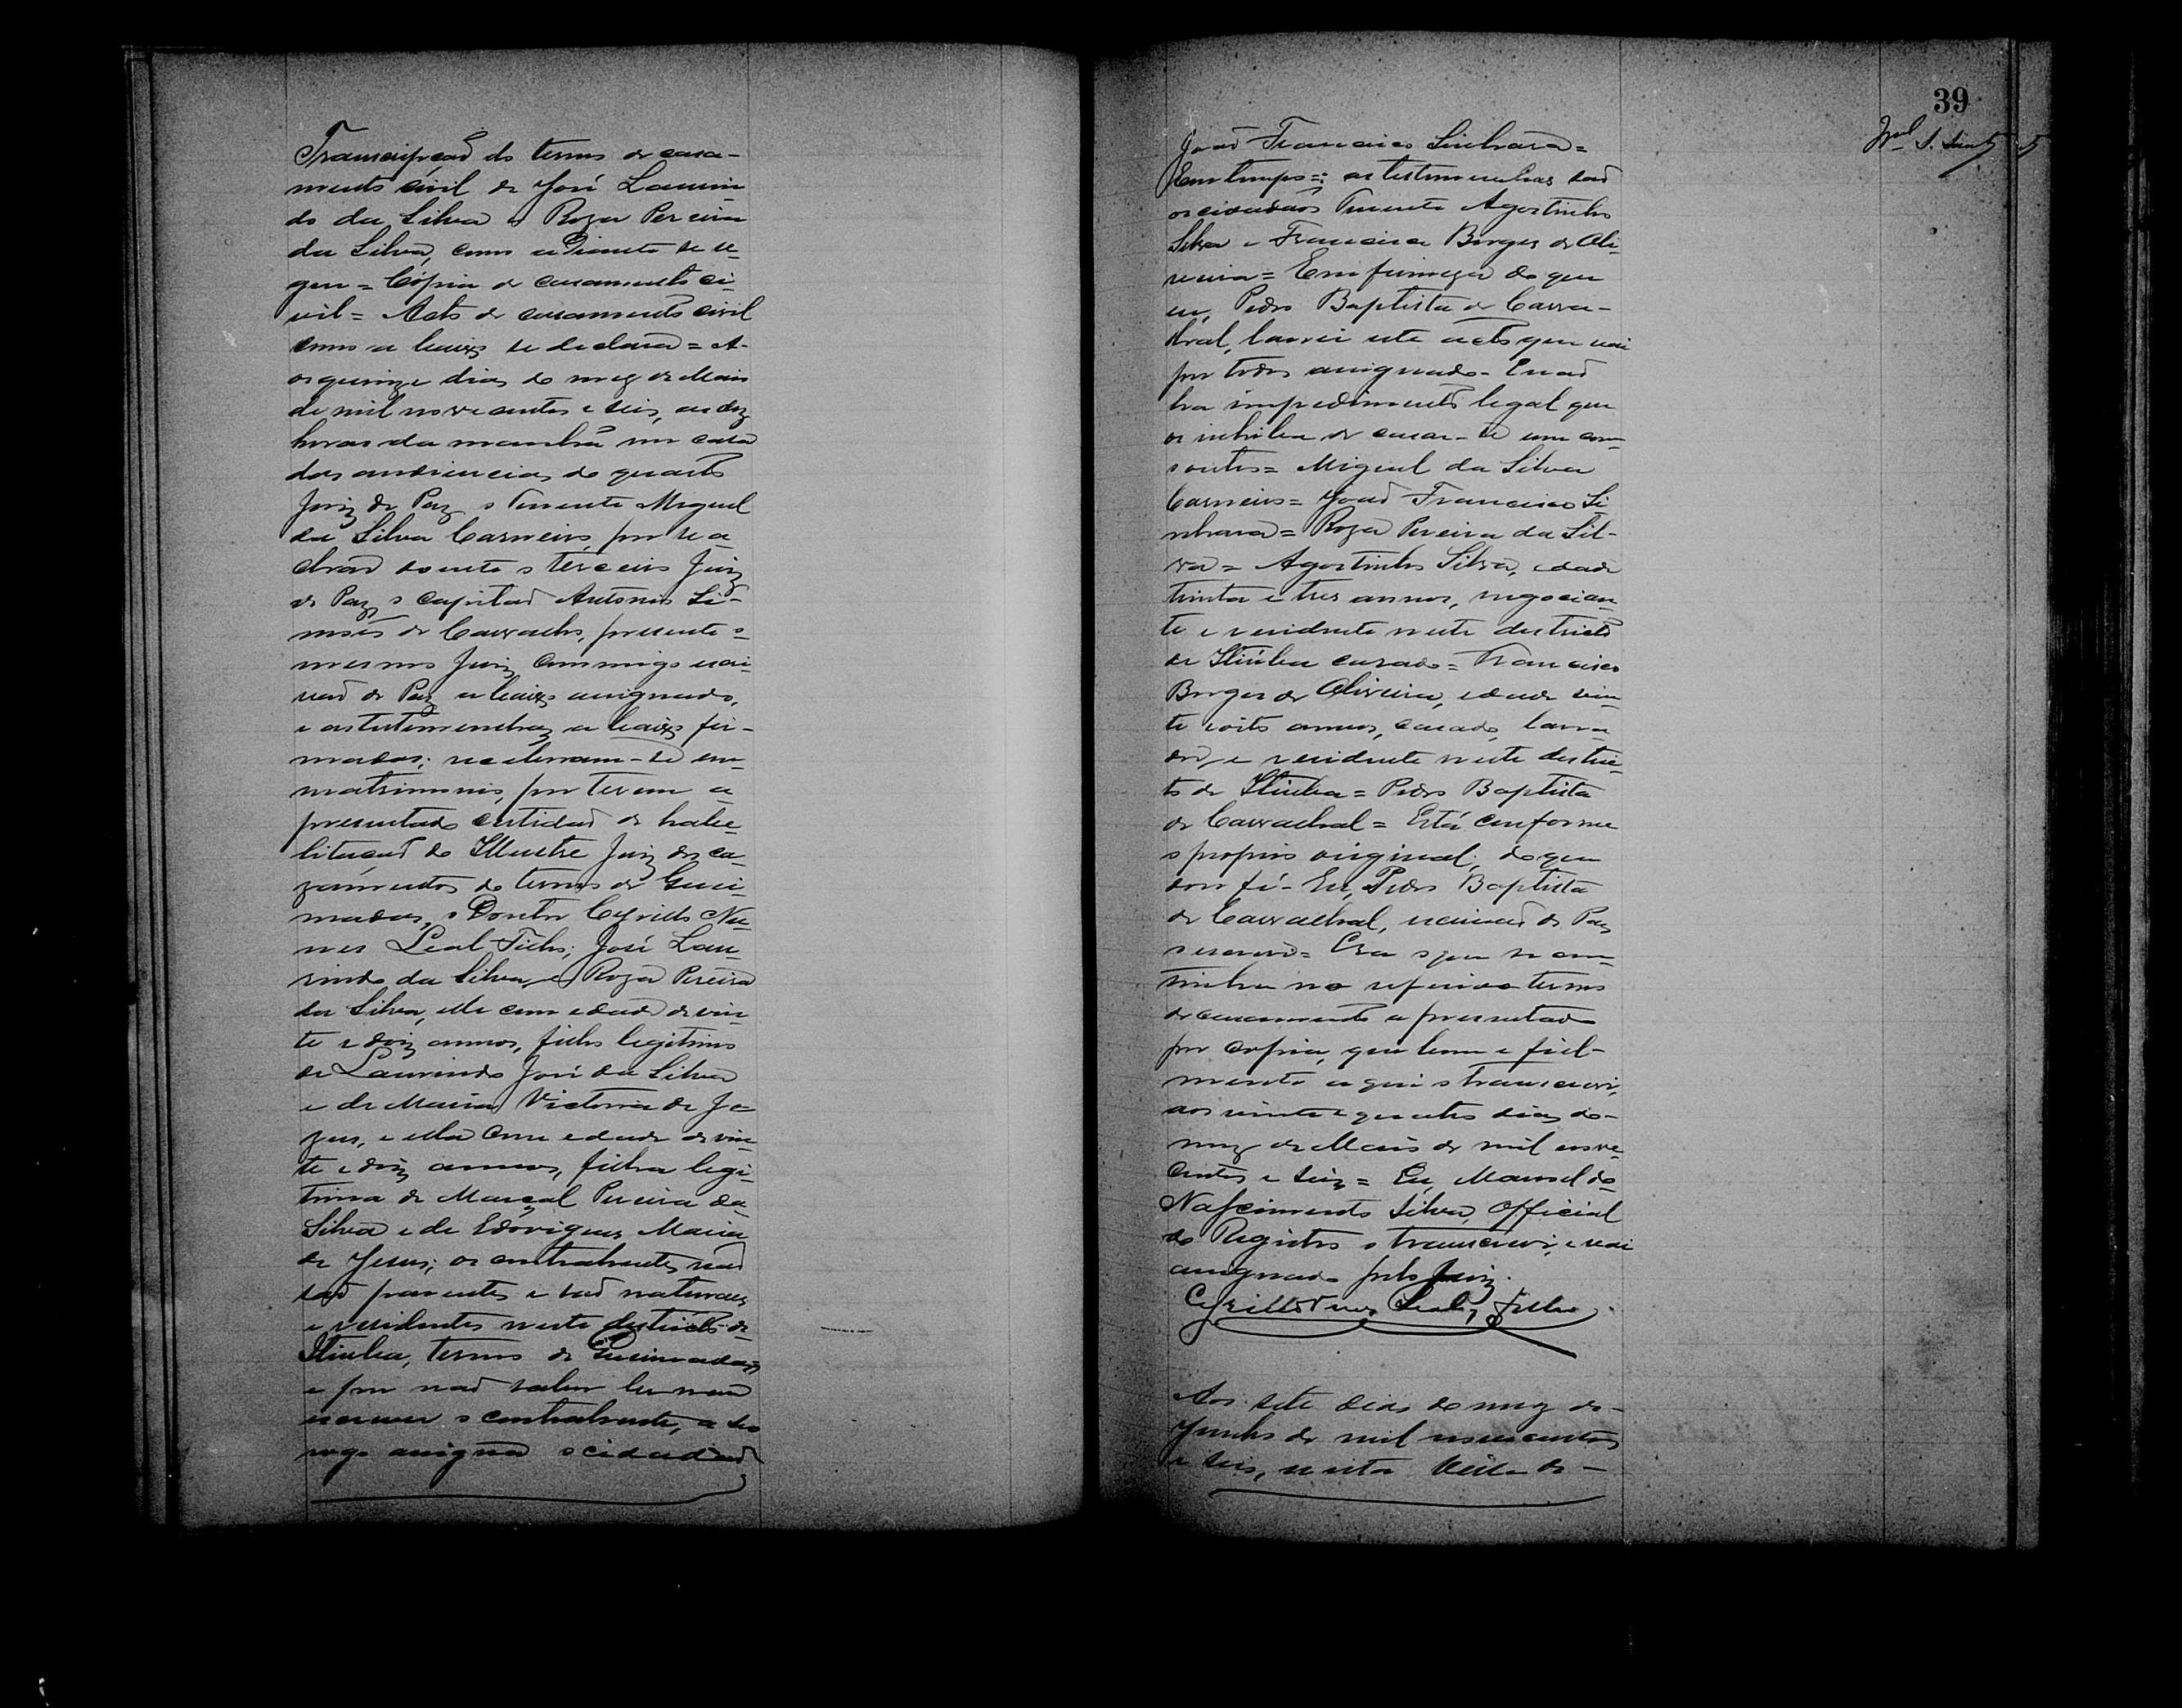 Transcripçaõ do termo de casa-
mento civil de José Laurin
do da Silva e Roza Pereira
da Silva, como adiante se se-
gue = Cópia de casamento ci-
vil = Acto de casamento civil
como a baixo se declara = A-
os quinze dias do mez de Maio
de mil novecentos e seis, as dez
horas da manhã na casa
das audiencias do quarto
Juiz de Paz o Tenente Miguel
da Silva Carneiro, por se a
char doente o terceiro Juiz
de Paz o Capitaõ Antonio Si-
mões de Carvalho, presente o
mesmo Juiz commigo escri-
vaõ de Paz a baixo assignado,
e as testemunhas a baixo fir-
madas; receberam-se em
matrimonio, por terem a
presentado certidaõ de habi-
litaçaõ do Illustre Juiz dos ca-
zamentos do termo de Quei-
madas, o Doutor Cyrillo Nu-
nes Leal Filho; José Lau-
rindo da Silva, e Roza Pereira
da Silva, elle com edade de vin-
te e doiz annos, filho legitimo
de Laurindo José da Silva
e de Maria Victoria de Je-
zus, e ella com edade de vin-
te e doiz annos, filha legi-
tima de Marçal Pereira da
Silva e de Edoviguez Maria
de Jesus; os contrahentes naõ
saõ parentes e saõ naturaes
e residentes neste districto de
Itiuba, termo de Queimadas
e por naõ saber ler nem
escrever o contrahente, a seo
rogo assigna o cidadaõ
39
Joaõ Francisco
Em tempo =: as testemunhas saõ
os cidadaõs Tenente Agostinho
Silva e Francisco Borges de Oli-
veira = Em firmeza do que
eu, Pedro Baptista de
lavrei este acto que vai
por todos assignado - E naõ
ha impedimento legal que
os inhiba de casar-se um com
o outro = Miguel da Silva
Carneiro = Joaõ Francisco
Roza Pereira da Sil-
va = Agostinho Silva, edade
trinta e tres annos, negocian-
te e residente neste districto
de Itiuba casado = Francisco
Borges de Oliveira, edade vin-
te e oito annos, casado, lavra-
dor, e residente neste distric-
to de Itiuba = Pedro Baptista
de = Está conforme
o proprio original; do que
dou fé - Eu, Pedro Baptista
de escrivaõ de Paz
o escrevi = Era o que se con-
tinha no referido termo
de casamento apresentado
por copia, que bem e fiel-
mente aqui o transcrevi,
aos vinte e quatro dias do
mez de Maio de mil nove-
centos e seis = Eu, Manoel do
Nascimento Silva, Official
do Registro o transcrevi, e vai
assignado pelo Juiz.
Cyrillo Nunes Leal Filho
Aos sete dias do mez de
Junho de mil novecentos
e seis, nesta Villa de -